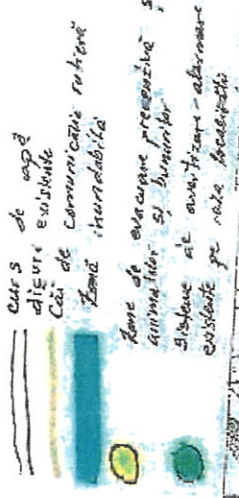 curs de apă
diguri existente
Căi de comunicație rutieră
Zonă inundabilă
Zone de evacuare preventivă
animalelor și bunurilor
Sisteme de avertizare - alarmare
existente pe raza localității